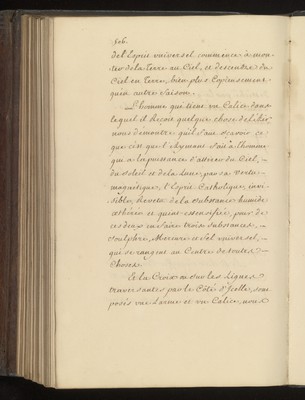 506.
de l'Esprit universel commence à mon-
ter de la Terre au Ciel, et descendre du
Ciel en Terre, bien plus copieusement
qu'en autre saison.
L'homme qui tient un Calice dans
lequel il Reçoit quelque chose de l'Air
nous démontre qu'il faut sçavoir ce
que c'est que l'Aymant fait à l'homme
qui a la puissance d'attirer du Ciel, —
du Soleil et de la Lune, par sa vertu
magnetique, l'Esprit Catholique, invi-
sible, Revetu de la substance humide
aethérée et quint-essenciée, pour de
ces deux en faire trois substances, —
Soulphre, Mercure et Sel universel, —
qui se rangent au Centre de toutes —
Choses.
Et la Croix sur les Lignes
traversantes par le Côté d'Icelle, com-
posés une Larme et un Calice, nous